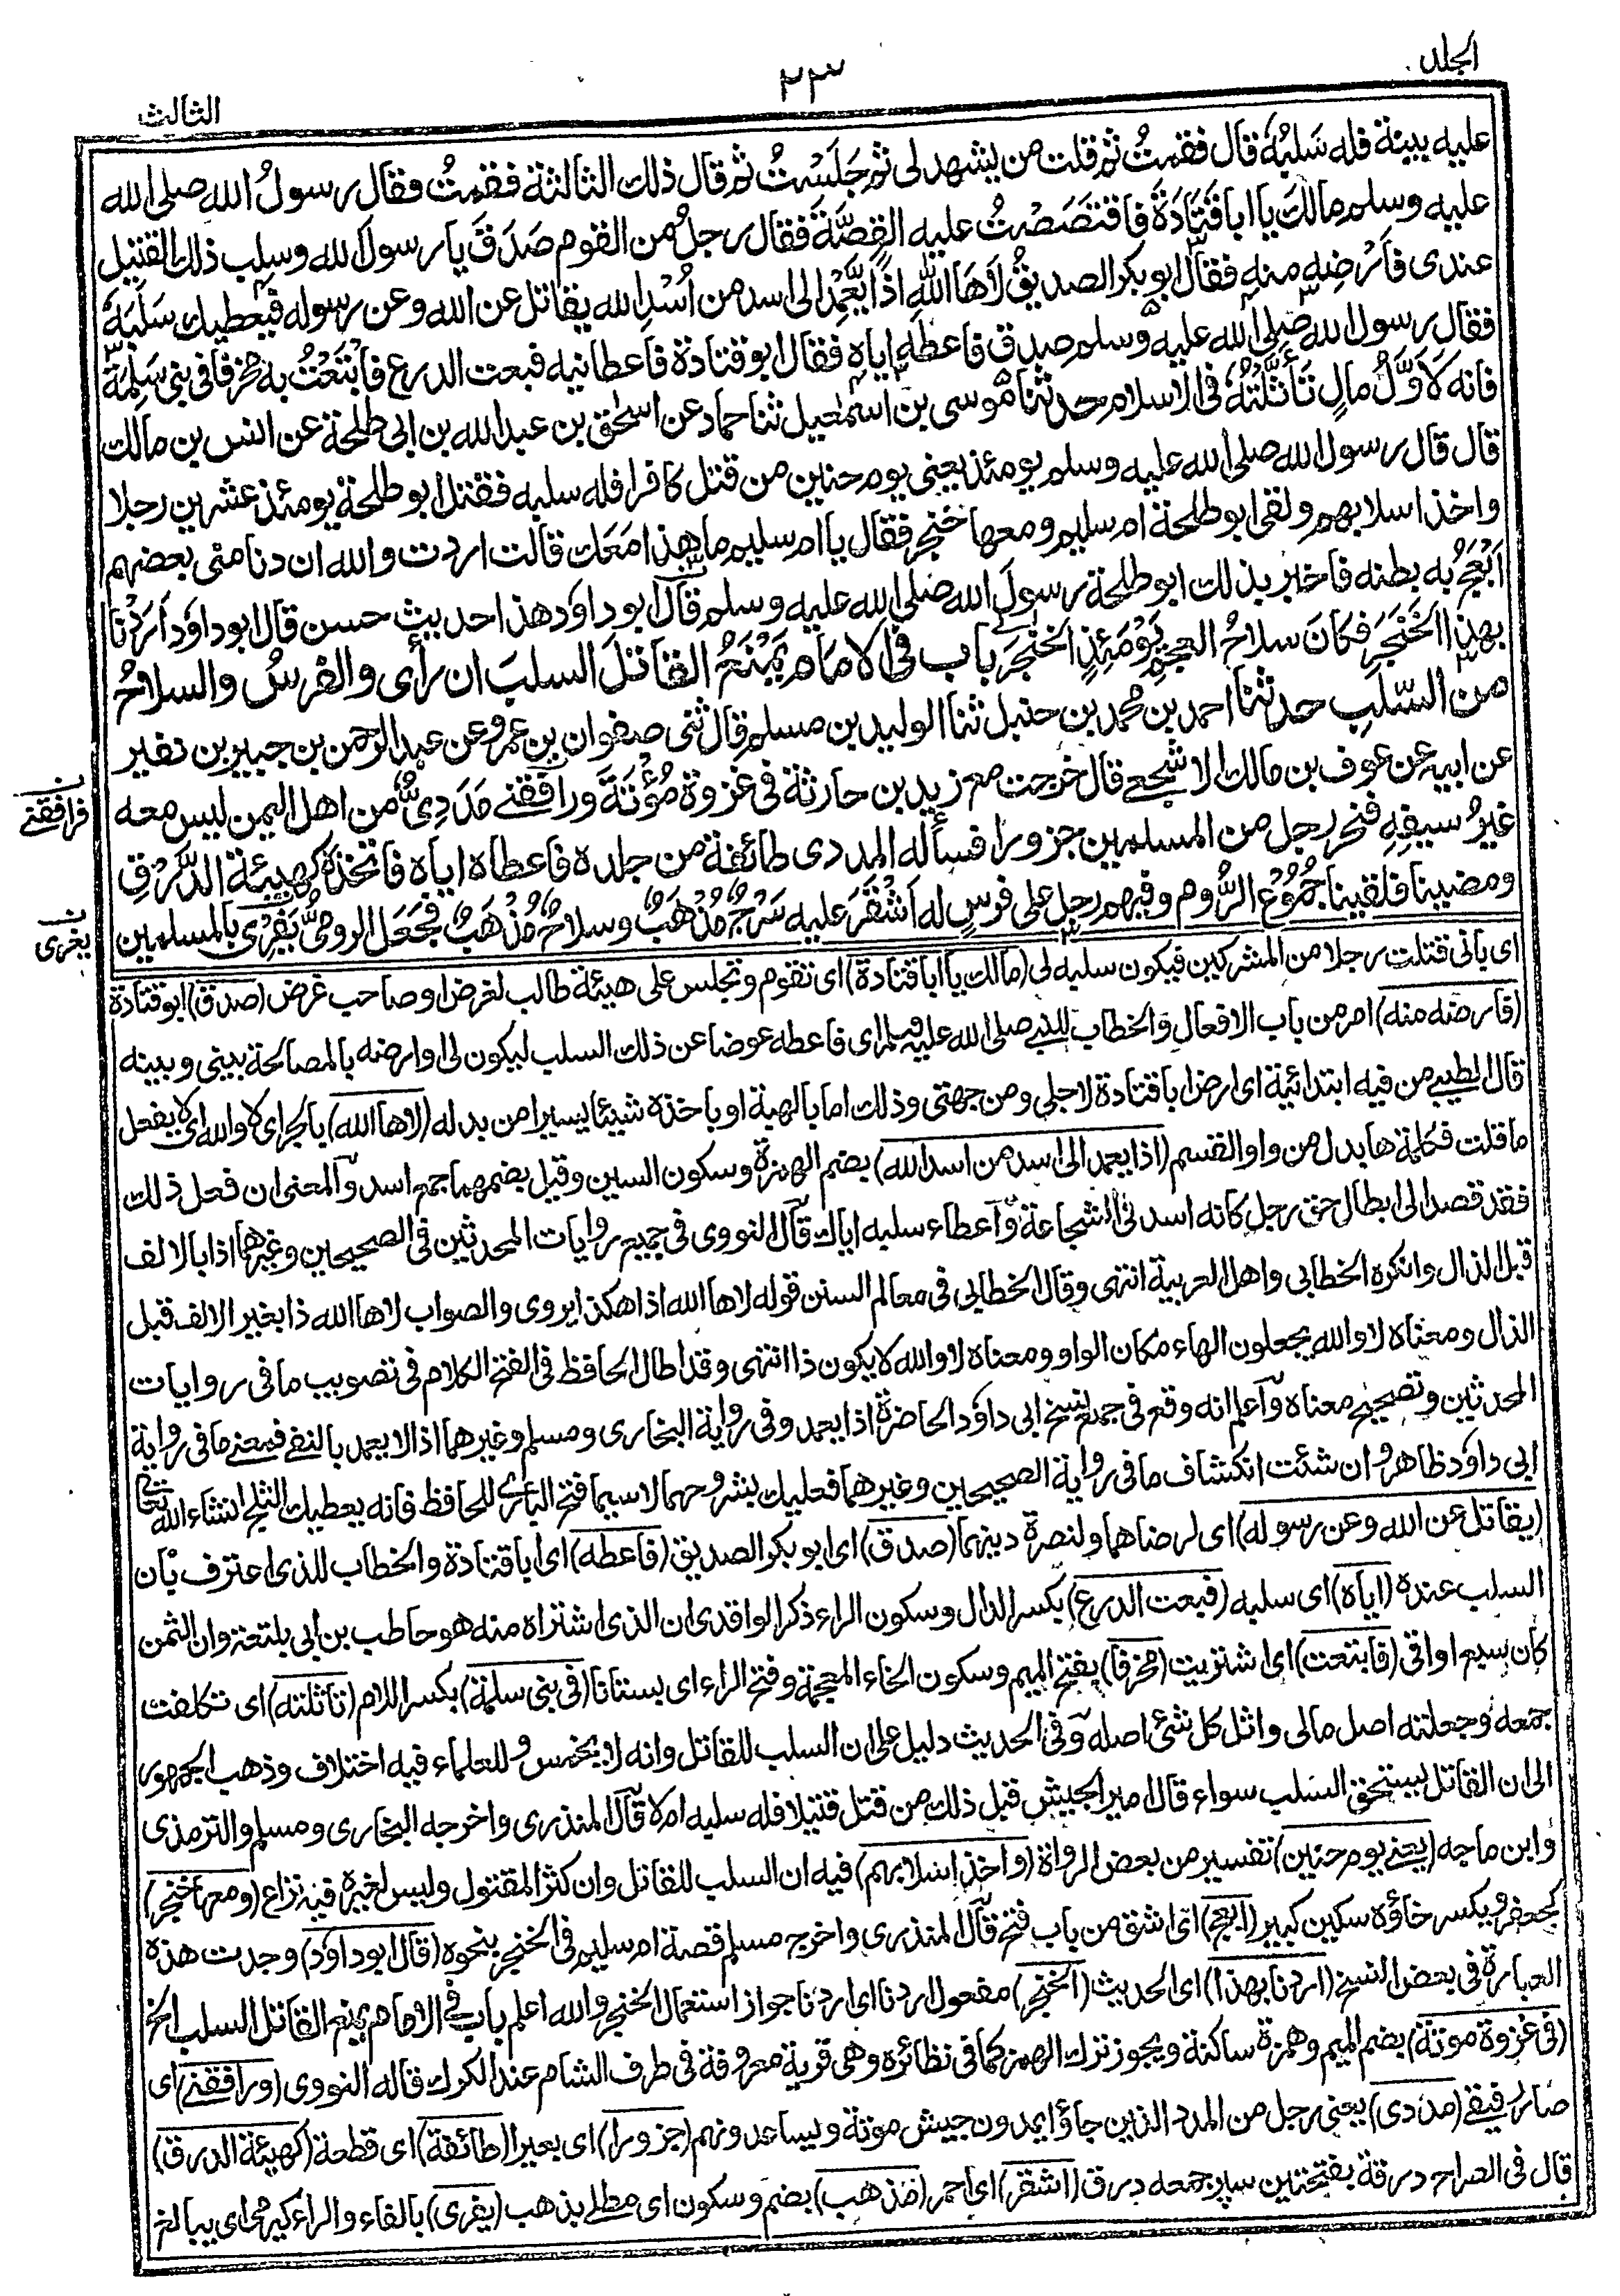 الجلد
٢٣
الثالث
عليه بينة فله سَلَبُهُ قال فقمتُ ثم قلت من يشهد لى ثم جَلَسْتُ ثم قال ذلك الثالثة فقمتُ فقال رسولُ الله صلى الله
عليه وسلم مالكَ يا ابا قَتَادَةَ فاقتَصَصْتُ عليه القِصَّةَ فقال رجلٌ من القوم صَدَقَ يا رسولَ الله وسلب ذلك القتيل
عندى فاَرْضِهِ منه فقال ابو بكر الصديقُ لَاهَا اللهِ اذًا يَعْمِدُ الى اسد من اُسْدِ الله يقاتل عن الله وعن رسوله فيعطيك سَلَبَهُ
فقال رسول الله صلى الله عليه وسلم صدق فاعطه اياه فقال ابو قتادة فاعطانيه فبعت الدرع فابْتَعْتُ به مَخْرَفًا فى بنى سَلِمَةَ
فانه لَاَوَّلُ مالٍ تَأَثَّلْتُهُ فى الاسلام حدثنا موسى بن اسمعيل ثنا حماد عن اسحق بن عبد الله بن ابى طلحة عن انس بن مالك
قال قال رسول الله صلى الله عليه وسلم يومئذ يعنى يوم حنين من قتل كافرا فله سلبه فقتل ابو طلحة يومئذ عشرين رجلا
واخذ اسلابهم ولقى ابو طلحة ام سليم ومعها خنجر فقال يا ام سليم ما هذا مَعَكِ قالت اردت والله ان دنا منى بعضهم
اَبْعَجُ به بطنه فاخبر بذلك ابو طلحة رسولَ الله صلى الله عليه وسلم قال ابو داود هذا حديث حسن قال ابو داود اَرَدْنَا
بهذا الخَنْجَرَ فكَانَ سلاحُ العجمِ يَوْمَئِذٍ الخَنْجَرَ باب فى الامام يَمْنَعُ القاتلَ السلبَ ان رأى والفرسُ والسلاحُ
من السَّلَبِ حدثنا احمد بن محمد بن حنبل ثنا الوليد بن مسلم قال ثنى صفوان بن عمرو عن عبد الرحمن بن جبير بن نفير
عن ابيه عن عوف بن مالك الاشجعى قال خرجت مع زيد بن حارثة فى غزوة مُؤْتَةَ ورافقنى مَدَدِىٌّ من اهل اليمن ليس معه
ن فرافقنى
غيرُ سيفِهِ فنحر رجل من المسلمين جزورا فسأله المددى طائفة من جلده فاعطاه اياه فاتخذه كهيئة الدَّرَقِ
ومضينا فلقينا جُمُوْعَ الرُّومِ وفيهم رجل على فرسٍ له اَشْقَرَ عليه سَرْجٌ مُذْهَبٌ وسلاحٌ مُذْهَبٌ فجَعَلَ الرومىُّ يَفْرِى بالمسلمين
ن يغرى
اى بانى قتلت رجلا من المشركين فيكون سلبه لى (مالك يا ابا قتادة) اى تقوم وتجلس على هيئة طالب لغرض او صاحب غرض (صدق) ابو قتادة
(فارضه منه) امر من باب الافعال والخطاب للنبى صلى الله عليه وسلم اى فاعطه عوضا عن ذلك السلب ليكون لى او ارضه بالمصالحة بينى وبينه
قال الطيبى من فيه ابتدائية اى ارض ابا قتادة لاجلى ومن جهتى وذلك اما بالهبة او باخذه شيئا يسيرا من بدله (لاها الله) بالجر اى لا والله اى لا يفعل
ما قلت فكلمة ها بدل من واو القسم (اذا يعمد الى اسد من اسد الله) بضم الهمزة وسكون السين وقيل بضمهما جمع اسد والمعنى ان فعل ذلك
فقد قصد الى ابطال حق رجل كانه اسد فى الشجاعة واعطاء سلبه اياك قال النووى فى جميع روايات المحدثين فى الصحيحين وغيرهما اذا بالالف
قبل الذال وانكره الخطابى واهل العربية انتهى وقال الخطابى فى معالم السنن قوله لاها الله اذا هكذا يروى والصواب لاها الله ذا بغير الالف قبل
الذال ومعناه لا والله يجعلون الهاء مكان الواو ومعناه لا والله لا يكون ذا انتهى وقد اطال الحافظ فى الفتح الكلام فى تصويب ما فى روايات
المحدثين وتصحيح معناه واعلم انه وقع فى جميع نسخ ابى داود الحاضرة اذا يعمد وفى رواية البخارى ومسلم وغيرهما اذا لا يعمد بالنفى فمعنى ما فى رواية
ابى داود ظاهر وان شئت انكشاف ما فى رواية الصحيحين وغيرهما فعليك بشروحهما لاسيما فتح البارى للحافظ فانه يعطيك الثلج انشاء الله تعالى
(يقاتل عن الله وعن رسوله) اى لرضاهما ولنصرة دينهما (صدق) اى ابو بكر الصديق (فاعطه) اى ابا قتادة والخطاب للذى اعترف بان
السلب عنده (اياه) اى سلبه (فبعت الدرع) بكسر الدال وسكون الراء ذكر الواقدى ان الذى اشتراه منه هو حاطب بن ابى بلتعة وان الثمن
كان سبع اواقى (فابتعت) اى اشتريت (مخرفا) بفتح الميم وسكون الخاء المعجمة وفتح الراء اى بستانا (فى بنى سلمة) بكسر اللام (تاثلته) اى تكلفت
جمعه وجعلته اصل مالى واثل كل شئ اصله وفى الحديث دليل على ان السلب للقاتل وانه لا يخمس وللعلماء فيه اختلاف وذهب الجمهور
الى ان القاتل يستحق السلب سواء قال امير الجيش قبل ذلك من قتل قتيلا فله سلبه ام لا قال المنذرى واخرجه البخارى ومسلم والترمذى
وابن ماجه (يعنى يوم حنين) تفسير من بعض الرواة (واخذ اسلابهم) فيه ان السلب للقاتل وان كثر المقتول وليس لغيره فيه نزاع (ومعها خنجر)
كجعفر ويكسر خاؤه سكين كبير (ابعج) اى اشق من باب فتح قال المنذرى واخرج مسلم قصة ام سليم فى الخنجر بنحوه (قال ابو داود) وجدت هذه
العبارة فى بعض النسخ (اردنا بهذا) اى الحديث (الخنجر) مفعول اردنا اى اردنا جواز استعمال الخنجر والله اعلم باب فى الامام يمنع القاتل السلب الخ
(فى غزوة موتة) بضم الميم وهمزة ساكنة ويجوز ترك الهمز كما فى نظائره وهى قرية معروفة فى طرف الشام عند الكرك قاله النووى (ورافقنى) اى
صار رفيقى (مددى) يعنى رجل من المدد الذين جاؤا يمدون جيش موتة ويساعدونهم (جزورا) اى بعيرا (طائفة) اى قطعة (كهيئة الدرق)
قال فى الصراح درقة بفتحتين سپر جمعه درق (اشقر) اى احمر (مذهب) بضم وسكون اى مطلى بذهب (يفرى) بالفاء والراء كيرمى اى يبالغ